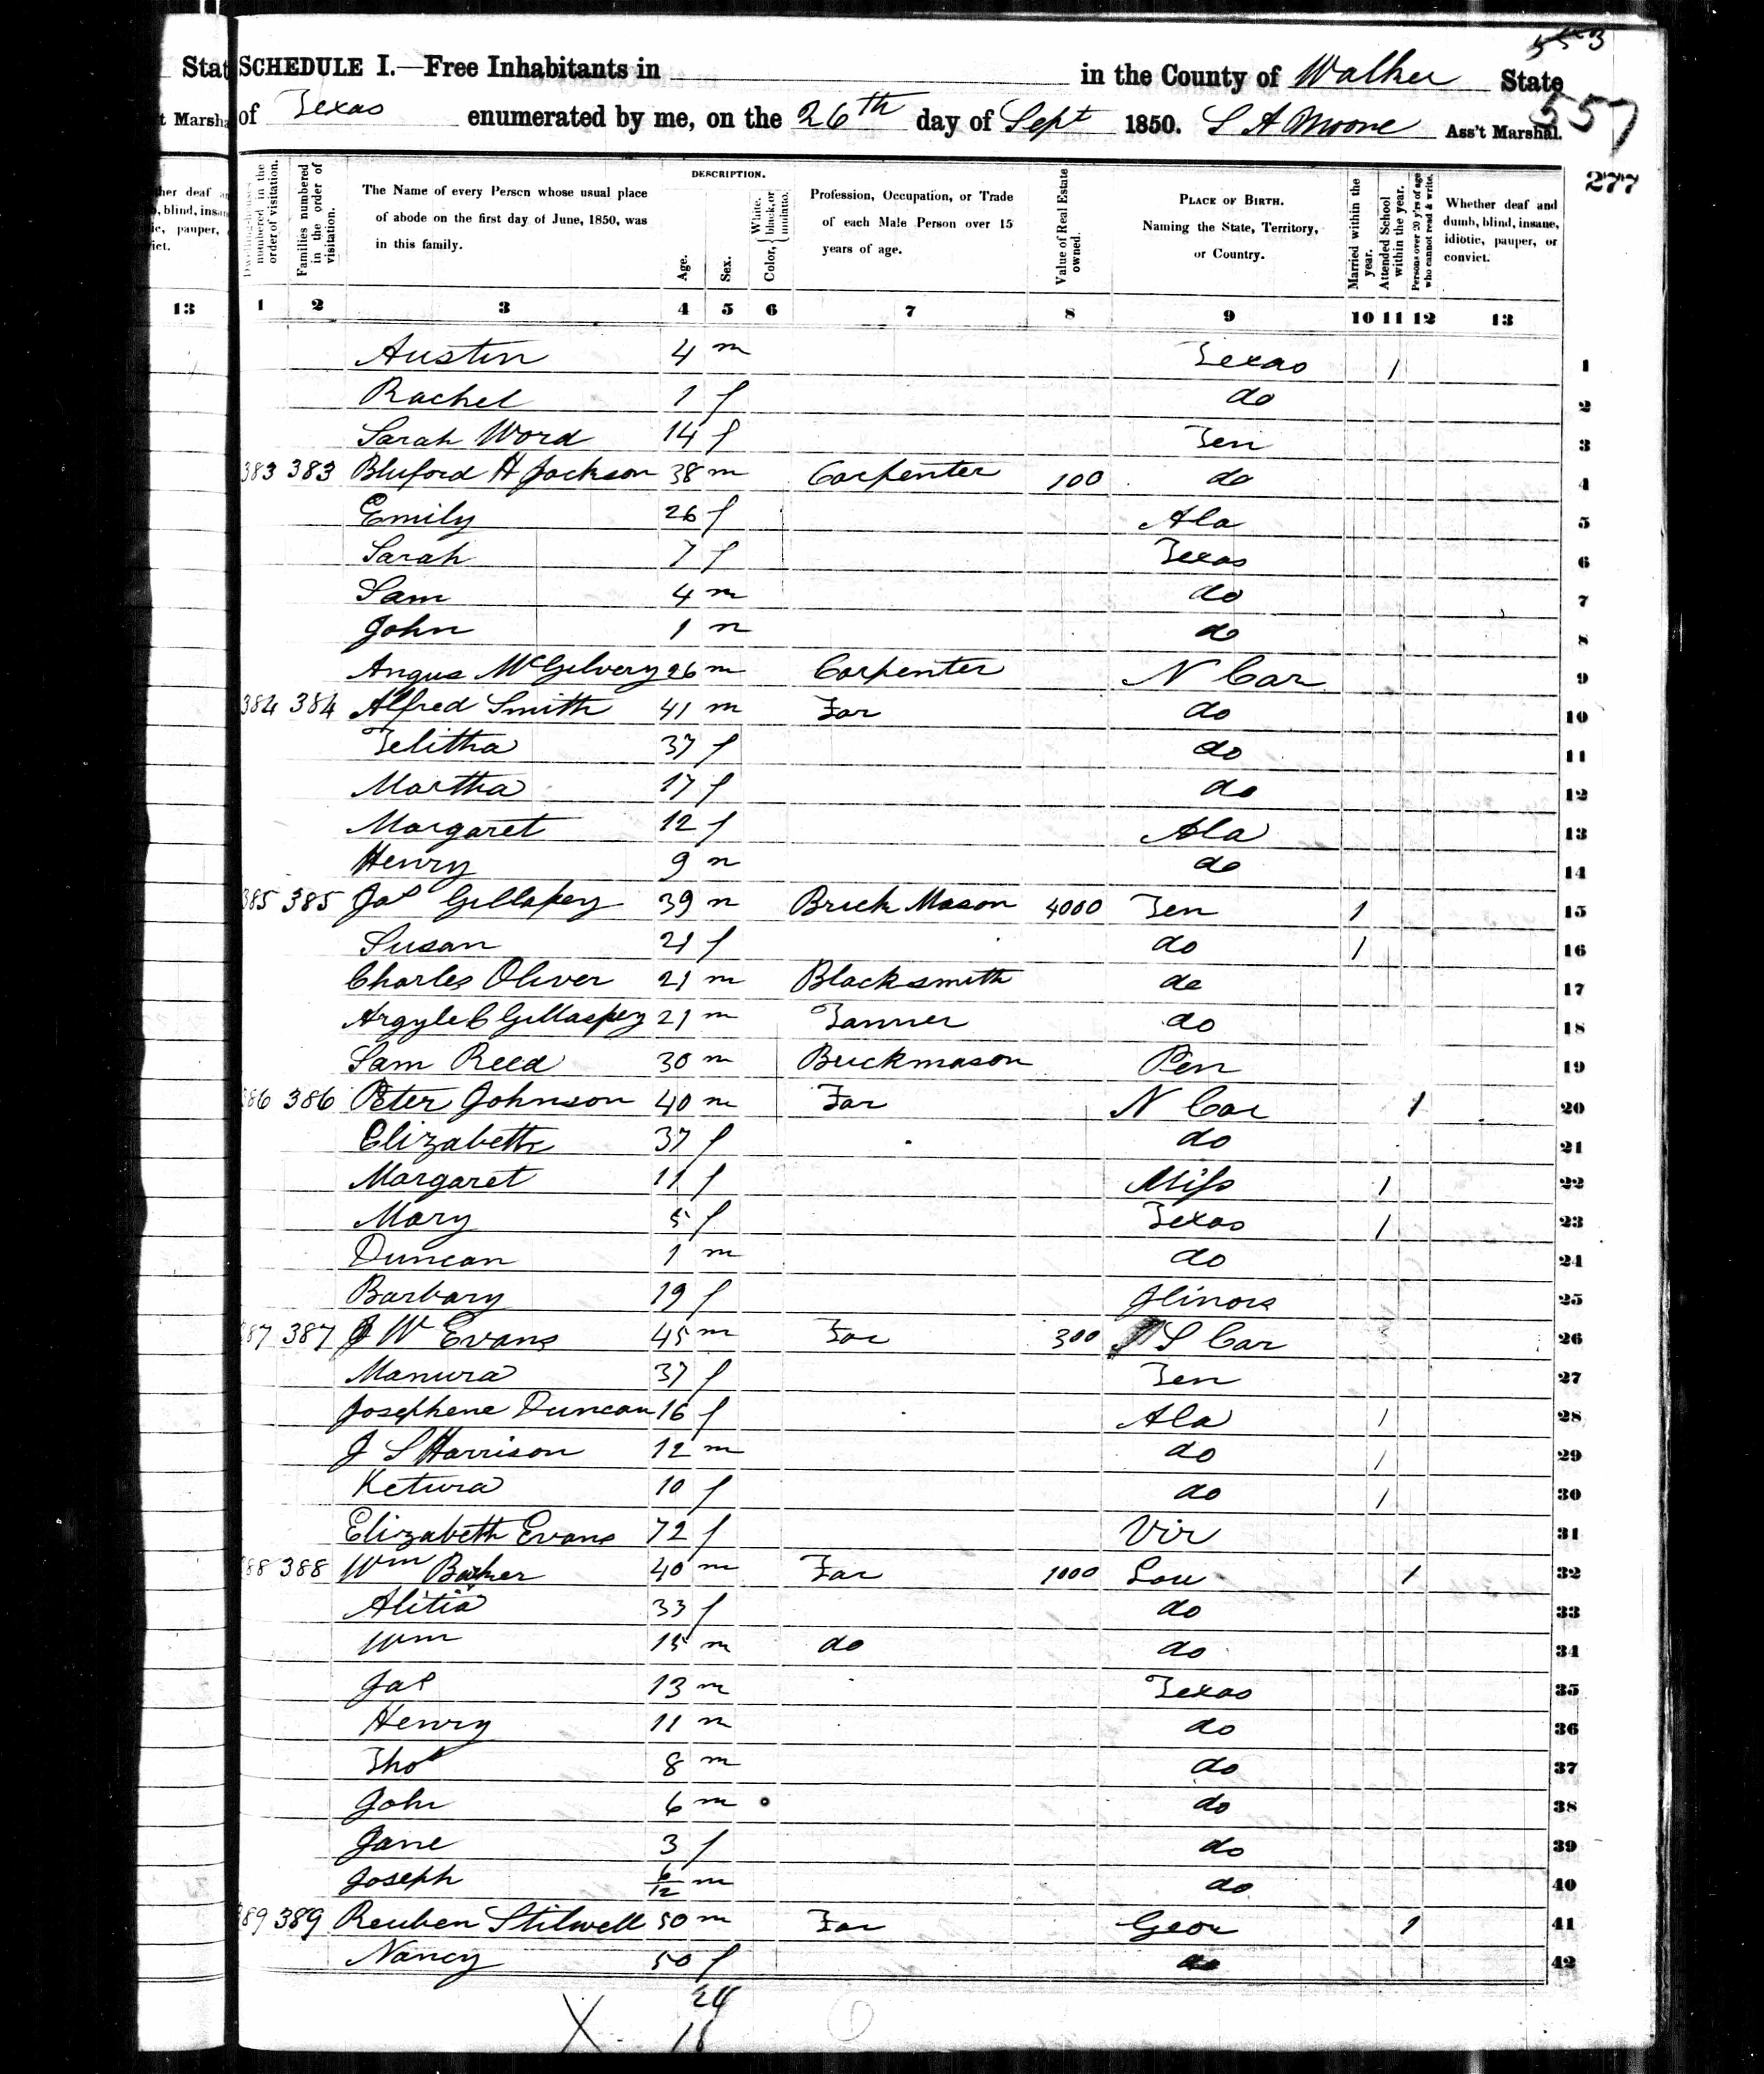 553
Stat SCHEDULE I.—Free Inhabitants in in the County of Walker State
t Marsha of Texas enumerated by me, on the 26th day of Sept 1850. S A Moore Ass't Marshal.
557
277
her deaf a
, blind, insan
ic, pauper,
ict.
13
Dwelling-houses numbered in the order of visitation.
Families numbered in the order of visitation.
The Name of every Person whose usual place of abode on the first day of June, 1850, was in this family.
DESCRIPTION.
Age.
Sex.
Color, { White, black, or mulatto.
Profession, Occupation, or Trade of each Male Person over 15 years of age.
Value of Real Estate owned.
PLACE OF BIRTH. Naming the State, Territory, or Country.
Married within the year.
Attended School within the year.
Persons over 20 y'rs of age who cannot read & write.
Whether deaf and dumb, blind, insane, idiotic, pauper, or convict.
1 2 3 4 5 6 7 8 9 10 11 12 13
Austin 4 m Texas 1 1
Rachel 1 f do 2
Sarah Word 14 f Ten 3
383 383 Bluford H Jackson 38 m Carpenter 100 do 4
Emily 26 f Ala 5
Sarah 7 f Texas 6
Sam 4 m do 7
John 1 m do 8
Angus McGilvery 26 m Carpenter N Car 9
384 384 Alfred Smith 41 m Far do 10
Telitha 37 f do 11
Martha 17 f do 12
Margaret 12 f Ala 13
Henry 9 m do 14
385 385 Jas Gillaspey 39 m Brick Mason 4000 Ten 1 15
Susan 21 f do 1 16
Charles Oliver 21 m Blacksmith do 17
Argyle C Gillaspey 21 m Tanner do 18
Sam Reed 30 m Brickmason Pen 19
386 386 Peter Johnson 40 m Far N Car 1 20
Elizabeth 37 f do 21
Margaret 11 f Miss 1 22
Mary 5 f Texas 1 23
Duncan 1 m do 24
Barbary 19 f Ilinois 25
387 387 J W Evans 45 m Far 300 S Car 26
Manura 37 f Ten 27
Josephene Duncan 16 f Ala 1 28
J S Harrison 12 m do 1 29
Ketura 10 f do 1 30
Elizabeth Evans 72 f Vir 31
388 388 Wm Barker 40 m Far 1000 Lou 1 32
Alitia 33 f do 33
Wm 15 m do do 34
Jas 13 m Texas 35
Henry 11 m do 36
Thos 8 m do 37
John 6 m do 38
Jane 3 f do 39
Joseph 6/12 m do 40
389 389 Reuben Stilwell 50 m Far Geor 1 41
Nancy 50 f do 42
24
X 18